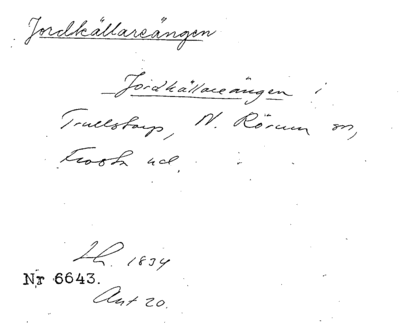 Jordkällareängen
Jordkällareängen i
Trullstorp, N. Rörum sn,
Frosta hd.
Lh. 1834
Nr 6643.
Akt 20.